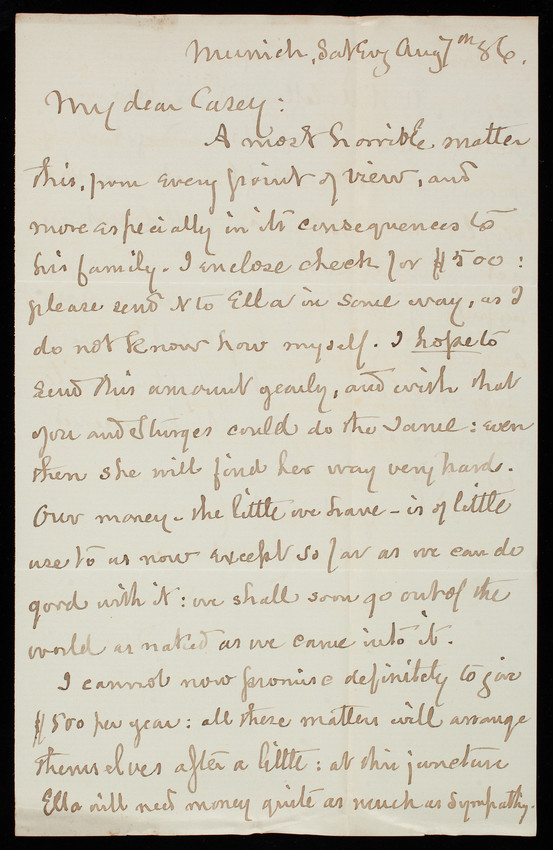 Munich, Sat Evg Aug 7th 86.
My dear Casey:
A most horrible matter
this, from every point of view, and
more especially in its consequences to
his family. I enclose check for $500:
please send it to Ella in some way, as I
do not know how myself. I hope to
send this amount yearly, and wish that
you and Sturges could do the same: even
then she will find her way very hard.
Our money - the little we have - is of little
use to us now except so far as we can do
good with it: we shall soon go out of the
world as naked as we came into it.
I cannot now promise definitely to give
$500 per year: all these matters will arrange
themselves after a little: at this juncture
Ella will need money quite as much as sympathy.